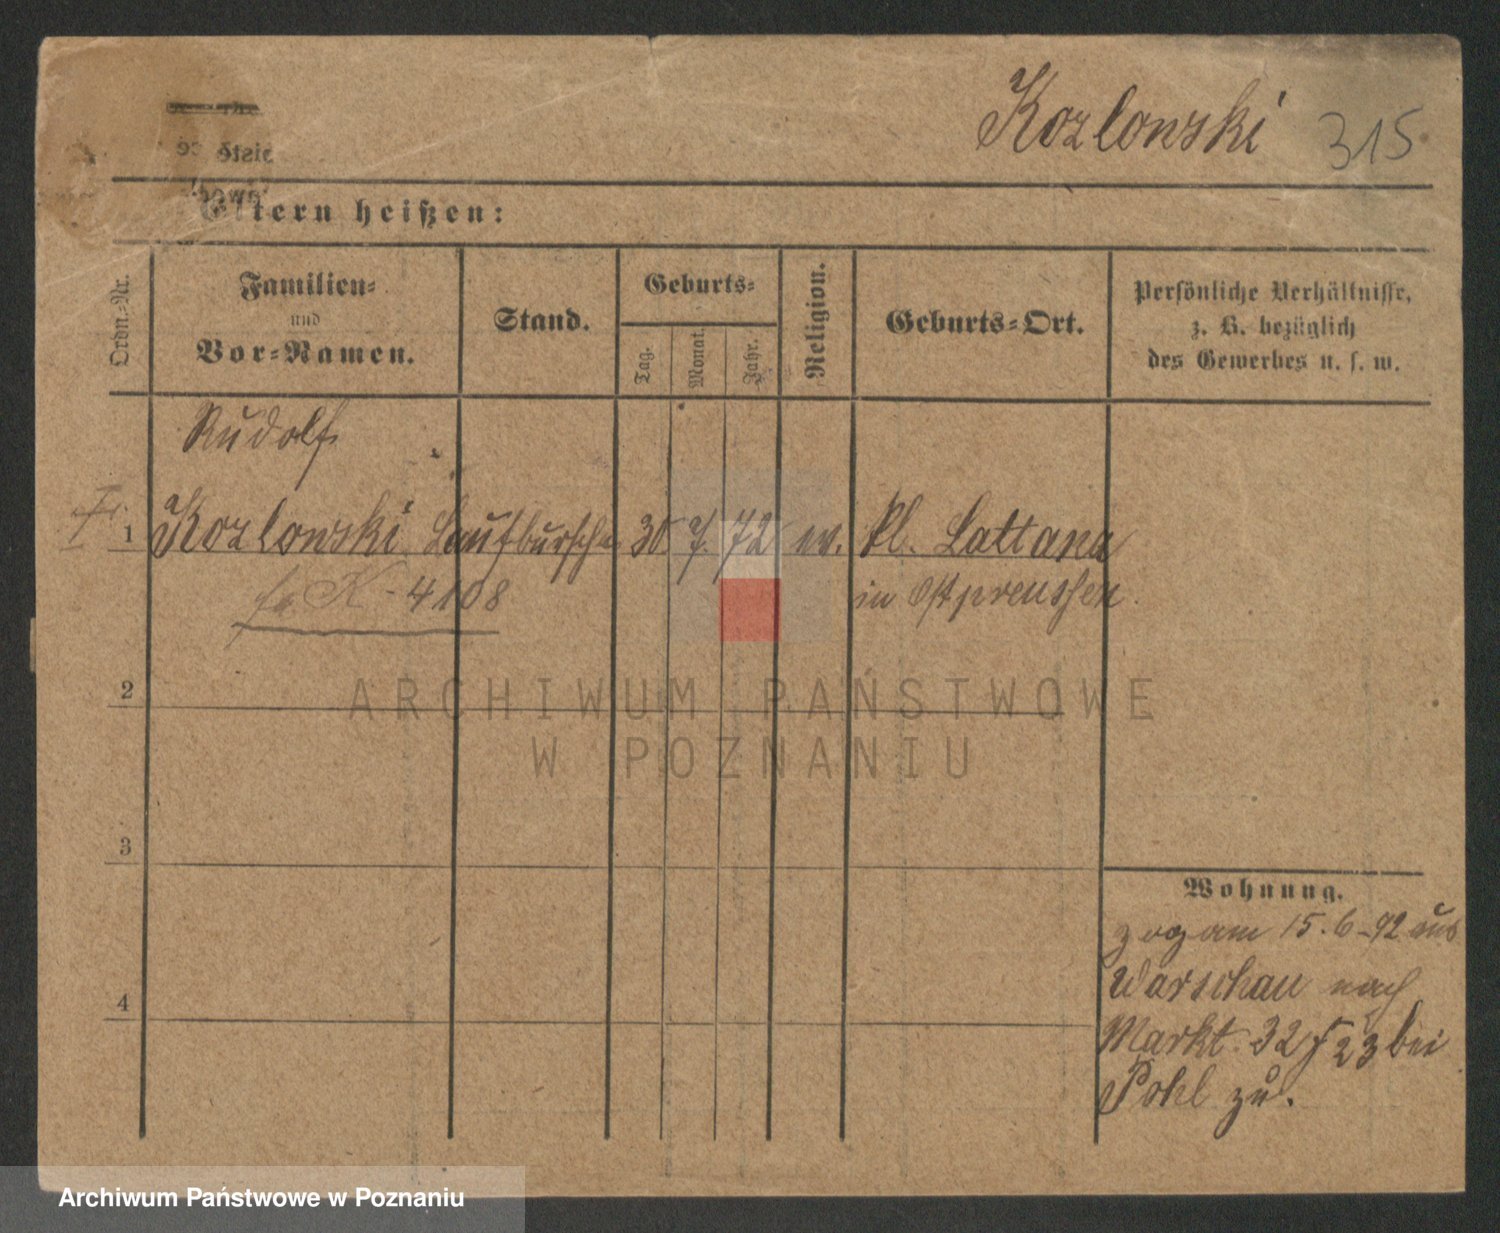 Kozlowski 315
Eltern heißen:
Ordn.-Nr.
Familien-
und
Vor-Namen.
Stand.
Geburts-
Tag.
Monat.
Jahr.
Religion.
Geburts-Ort.
Persönliche Verhältnisse,
z. B. bezüglich
des Gewerbes u. s. w.
Rudolf
1 Kozlowski Laufbursche 30 7. 72 ev. Kl. Lattana
K - 4108 in Ostpreussen
2
ARCHIWUM PAŃSTWOWE
W POZNANIU
3
Wohnung.
zog am 15.6-92 aus
Warschau nach
4
Markt 32 23 bei
Pohl zu.
Archiwum Państwowe w Poznaniu